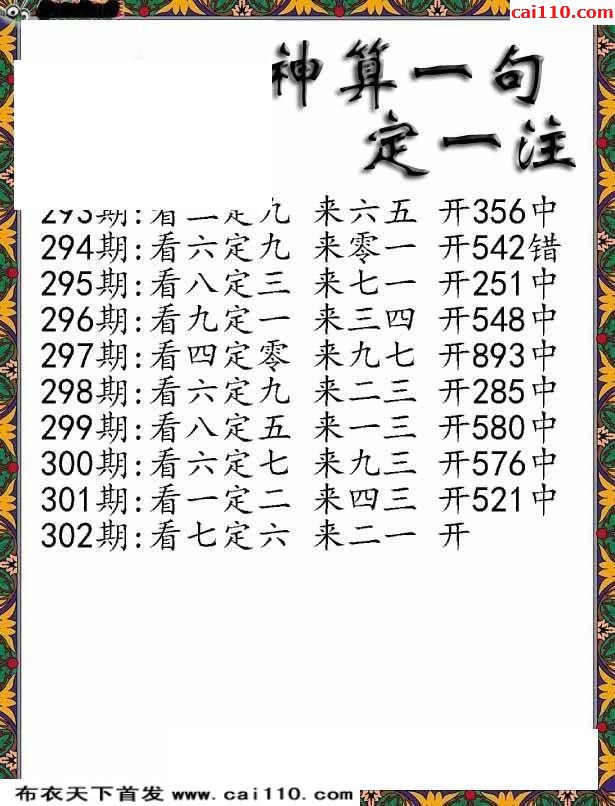 cai110.com
神算一句
定一注
293期:看二定九 来六五 开356中
294期:看六定九 来零一 开542错
295期:看八定三 来七一 开251中
296期:看九定一 来三四 开548中
297期:看四定零 来九七 开893中
298期:看六定九 来二三 开285中
299期:看八定五 来一三 开580中
300期:看六定七 来九三 开576中
301期:看一定二 来四三 开521中
302期:看七定六 来二一 开
布衣天下首发 www.cai110.com